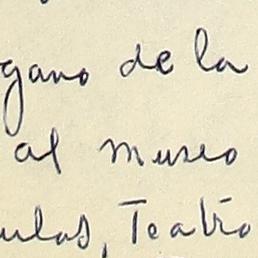 gano de la
al museo
ulas, Teatro